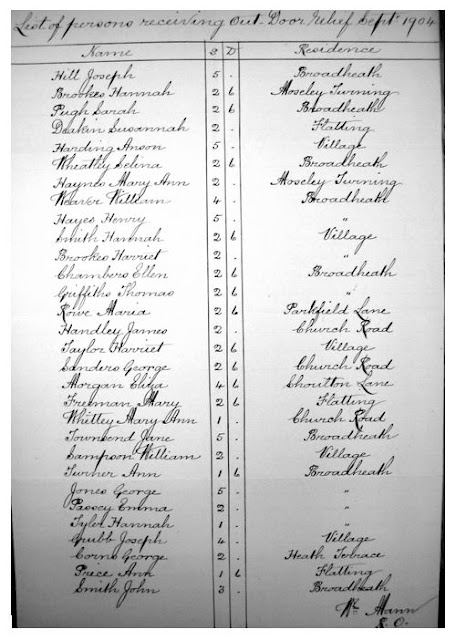 List of persons receiving Out-Door Relief Sept. 1904
Name S D Residence
Hill Joseph 5 . Broadheath
Brookes Hannah 2 6 Moseley Turning
Pugh Sarah 2 6 Broadheath
Deakin Susannah 2 . Flatting
Harding Anson 5 . Village
Wheatley Selina 2 6 Broadheath
Haynes Mary Ann 2 . Moseley Turning
Weaver William 4 . Broadheath
Hayes Henry 5 . "
Smith Hannah 2 6 Village
Brookes Harriet 2 . "
Chambers Ellen 2 6 Broadheath
Griffiths Thomas 2 6
Rowe Maria 2 6 Parkfield Lane
Handley James 2 . Church Road
Taylor Harriet 2 6 Village
Sanders George 2 6 Church Road
Morgan Eliza 4 6 Lane
Freeman Mary 2 6 Flatting
Whittey Mary Ann 1 . Church Road
Townsend Jane 5 . Broadheath
Sampson William 2 . Village
Turner Ann 1 6 Broadheath
Jones George 5 . "
Passey Emma 2 . "
Tyler Hannah 1 . "
Grubb Joseph 4 . Village
Corns George 2 . Heath Terrace
Price Ann 1 6 Flatting
Smith John 3 . Broadheath
Wm. Mann